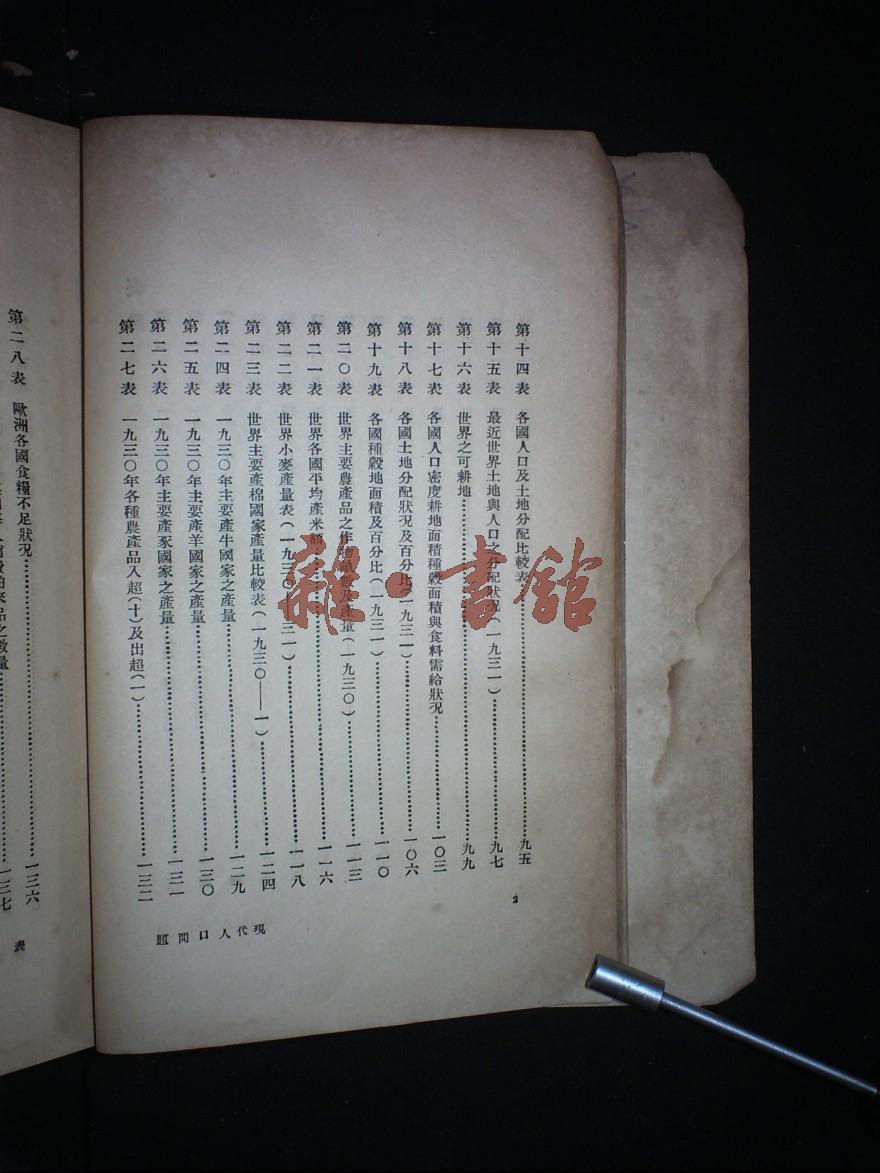 第十四表　各國人口及土地分配比較表……九五
第十五表　最近世界土地與人口之分配狀況(一九三一)……九七
第十六表　世界之可耕地……九九
第十七表　各國人口密度耕地面積種穀面積與食料需給狀況……一〇三
第十八表　各國土地分配狀況及百分比(一九三一)……一〇六
第十九表　各國種穀地面積及百分比(一九三一)……一一〇
第二〇表　世界主要農產品之作物畝數及產量(一九三〇)……一一三
第二一表　世界各國平均產米額……一一六
第二二表　世界小麥產量表(一九三〇—三一)……一一八
第二三表　世界主要產棉國家產量比較表(一九三〇——一)……一二四
第二四表　一九三〇年主要產牛國家之產量……一二九
第二五表　一九三〇年主要產羊國家之產量……一三〇
第二六表　一九三〇年主要產豕國家之產量……一三一
第二七表　一九三〇年各種農產品入超(十)及出超(一)……一三二
2
現代人口問題
第二八表　歐洲各國食糧不足狀況……一三六
來品之數量……一三七
表
雜·書館